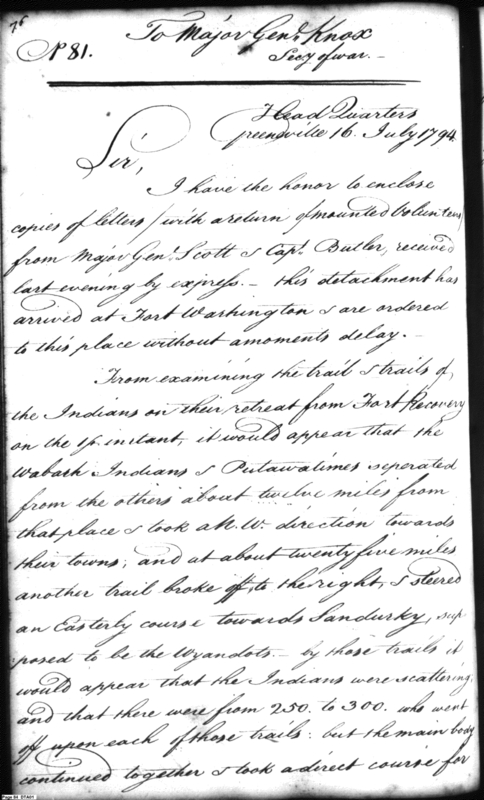 76
No 81.
To Major Genl. Knox
Secy of war. —
Head Quarters
Greenville 16. July 1794
Sir,
I have the honor to enclose
copies of letters (with a return of mounted Volunteers)
from Major Genl. Scott & Capt. Butler, received
last evening by express. — this detachment has
arrived at Fort Washington & are ordered
to this place without a moments delay. —
From examining the trail & trails of
the Indians on their retreat from Fort Recovery
on the instant, it would appear that the
Wabash Indians & Putawatimes seperated
from the others about twelve miles from
that place & took a N.W. direction towards
their towns; and at about twenty five miles
another trail broke off, to the right, & steered
an Easterly course towards Sandusky, sup-
posed to be the Wyandots. — by those trails it
would appear that the Indians were scattering,
and that there were from 250. to 300. who went
off upon each of those trails: but the main body
continued together & took a direct course for
Page 84 07A01